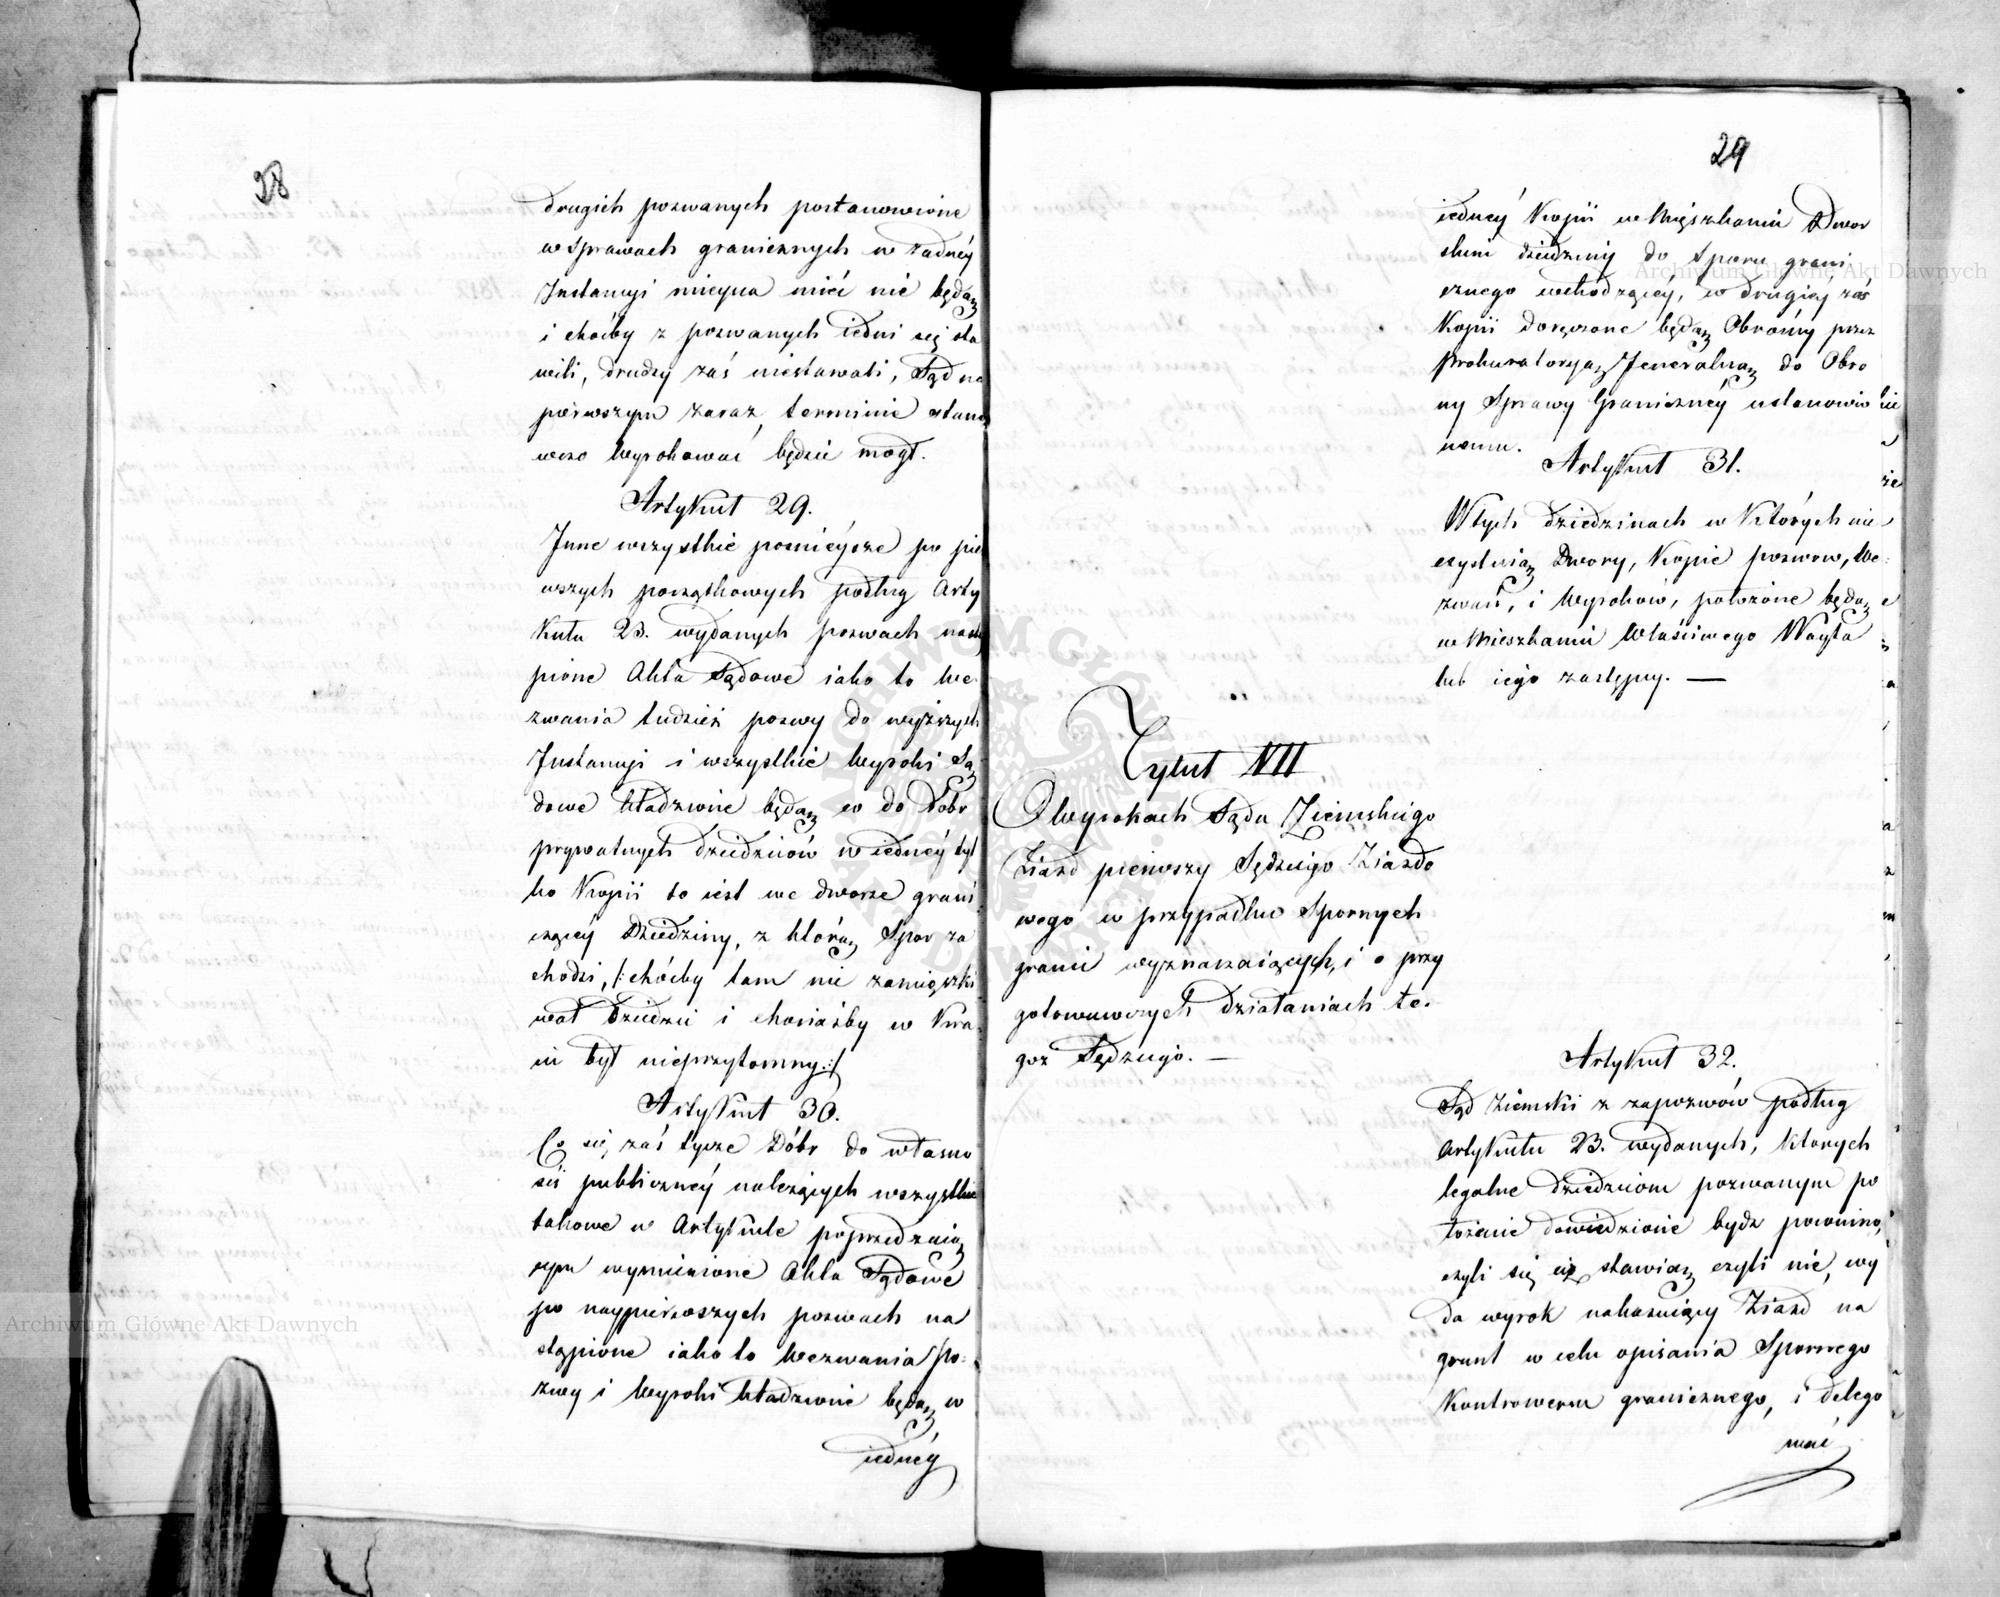 28
drugich pozwanych postanowione
w Sprawach granicznych w żadnéy
Instancyi mieysca mieć nie będą
i choćby z pozwanych iedni się sta
wili, drudzy zaś niestawali, Sąd na
pierwszym zaraz terminie stano
wczo wyrokować będzie mógł.
Artykuł 29.
Inne wszystkie poźnieysze po pier
wszych początkowych podług Arty
kułu 23. wydanych pozwach nastę
pione Akta Sądowe iako to We-
zwania tudzież pozwy do wyższych
Instancyi i wszystkie wyroki Są
dowe kładzione będą w do Dobr
prywatnych dziedziców w iednéy tyl
ko Kopii to iest we dworze grani
czącéy Dziedziny, z którą Spor za
chodzi, /:choćby tam nie zamieszki
wał dziedzic i chociażby w Kra-
iu był nieprzytomny:/
Artykuł 30.
Co się zaś tycze Dóbr do własno
ści publicznéy należących wszystkie
takowe w Artykule poprzedzaią
cym wymienione Akta Sądowe
po naypierwszych pozwach na
stąpione iako to Wezwania Po-
zwy i Wyroki kładzione będą w
iednéy
29
iednéy Kopii w Mieszkaniu Dwor
skim dziedziny do Sporu grani
cznego wchodzącéy, w drugiéy zaś
Kopii doręczone będą Obrońcy przez
Prokuratoryą Jeneralną do Obro
ny Sprawy Granicznéy ustanowio
nemu.
Artykuł 31.
W tych dziedzinach w których nie
exystuią Dwory, Kopie pozwow, We-
zwań, i Wyroków, położone będą
w Mieszkaniu Właściwego Woyta
lub iego zastępcy. —
Tytuł VII
O Wyrokach Sądu Ziemskiego
Ziazd pierwszy Sędziego Ziazdo
wego w przypadku Spornych
granic wyznaczaiących, i o przy
gotowawczych działaniach te-
goż Sędziego. —
Artykuł 32.
Sąd Ziemski z zapozwów podług
Artykułu 23. wydanych, których
legalne dziedzicom pozwanym po
łożenie dowiedzione bydz powinno,
czyli się ci stawią czyli nie, wy
da wyrok nakazuiący Ziazd na
grunt w celu opisania Spornego
Kontrowersu granicznego, i delego
wać